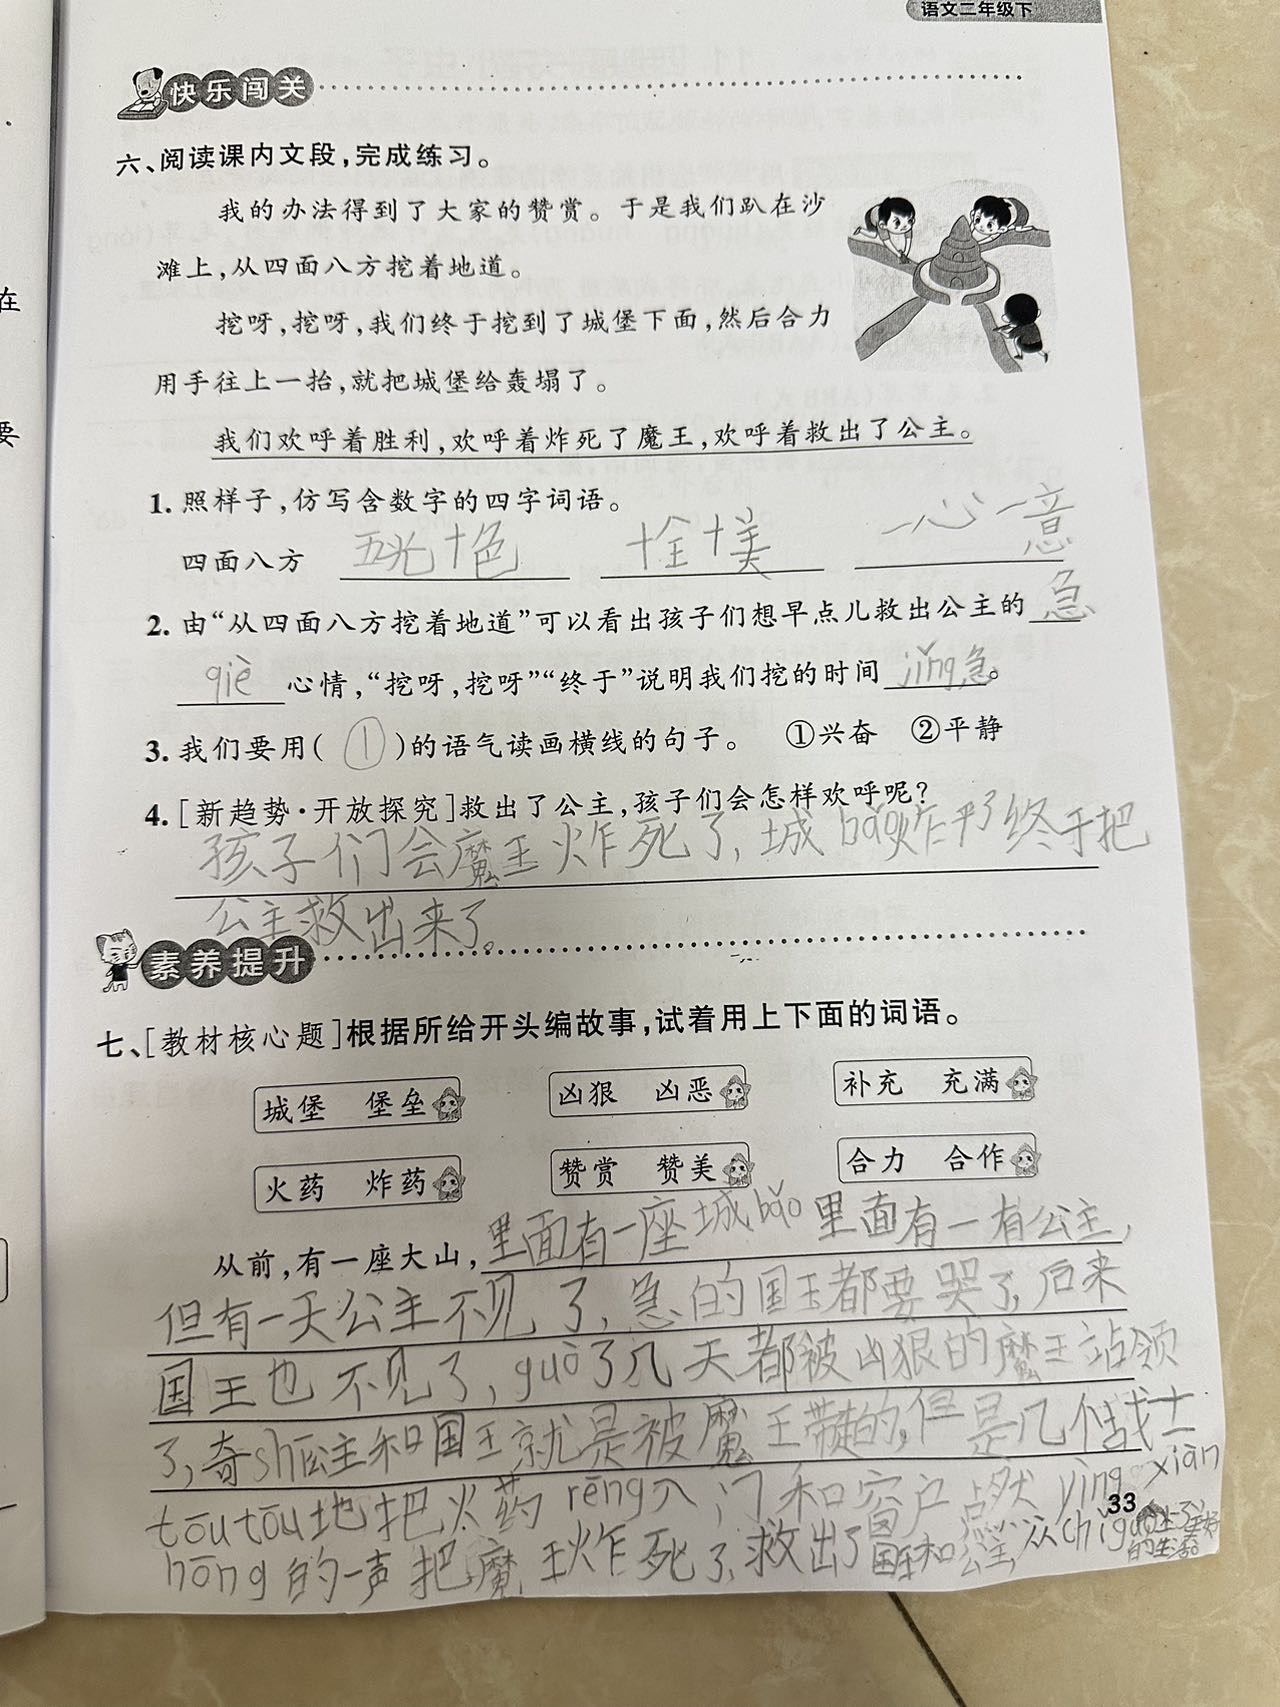 语文二年级下
快乐闯关
六、阅读课内文段，完成练习。
我的办法得到了大家的赞赏。于是我们趴在沙
滩上，从四面八方挖着地道。
挖呀，挖呀，我们终于挖到了城堡下面，然后合力
用手往上一抬，就把城堡给轰塌了。
我们欢呼着胜利，欢呼着炸死了魔王，欢呼着救出了公主。
1. 照样子，仿写含数字的四字词语。
四面八方 五光十色 十全十美 一心一意
2. 由“从四面八方挖着地道”可以看出孩子们想早点儿救出公主的急
qiè心情，“挖呀，挖呀”“终于”说明我们挖的时间jǐng急。
3. 我们要用( 1 )的语气读画横线的句子。 ①兴奋 ②平静
4. [新趋势·开放探究]救出了公主，孩子们会怎样欢呼呢？
孩子们会魔王炸死了，城bǎo炸平了终于把
公主救出来了。
素养提升
七、[教材核心题]根据所给开头编故事，试着用上下面的词语。
城堡 堡垒 凶狠 凶恶 补充 充满
火药 炸药 赞赏 赞美 合力 合作
从前，有一座大山，里面有一座城bǎo里面有一有公主，
但有一天公主不见了，急的国王都要哭了，后来
国王也不见了，guò了几天都被凶狠的魔王站领
了，奇sh公主和国王就是被魔王带走的，但是几个战士
tōutōu地把火药rēng入门和窗户点然yǐng xiàn
hōng的一声把魔王炸死了，救出了国王和公主从cǐguò上了美好
的生活
33
在
要